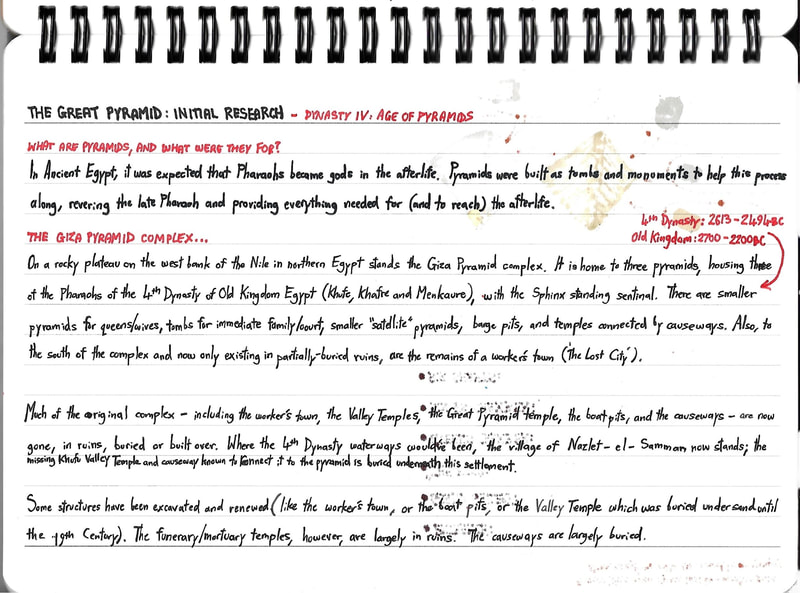 THE GREAT PYRAMID: INITIAL RESEARCH - DYNASTY IV: AGE OF PYRAMIDS
WHAT ARE PYRAMIDS, AND WHAT WERE THEY FOR?
In Ancient Egypt, it was expected that Pharaohs became gods in the afterlife. Pyramids were built as tombs and monuments to help this process
along, revering the late Pharaoh and providing everything needed for (and to reach) the afterlife.
4th Dynasty: 2613-2494BC
Old Kingdom: 2700-2200BC
THE GIZA PYRAMID COMPLEX...
On a rocky plateau on the west bank of the Nile in northern Egypt stands the Giza Pyramid complex. It is home to three pyramids, housing three
of the Pharaohs of the 4th Dynasty of Old Kingdom Egypt (Khufu, Khafre and Menkaure), with the Sphinx standing sentinal. There are smaller
pyramids for queens/wives, tombs for immediate family/court, smaller "satellite" pyramids, barge pits, and temples connected by causeways. Also, to
the south of the complex and now only existing in partially-buried ruins, are the remains of a worker's town ('The Lost City').
Much of the original complex - including the worker's town, the Valley Temples, the Great Pyramid temple, the boat pits, and the causeways - are now
gone, in ruins, buried or built over. Where the 4th Dynasty waterways would've been, the village of Nazlet-el-Samman now stands; the
missing Khufu Valley Temple and causeway known to connect it to the pyramid is buried underneath this settlement.
Some structures have been excavated and renewed (like the worker's town, or the boat pits, or the Valley Temple which was buried under sand until
the 19th Century). The funerary/mortuary temples, however, are largely in ruins. The causeways are largely buried.